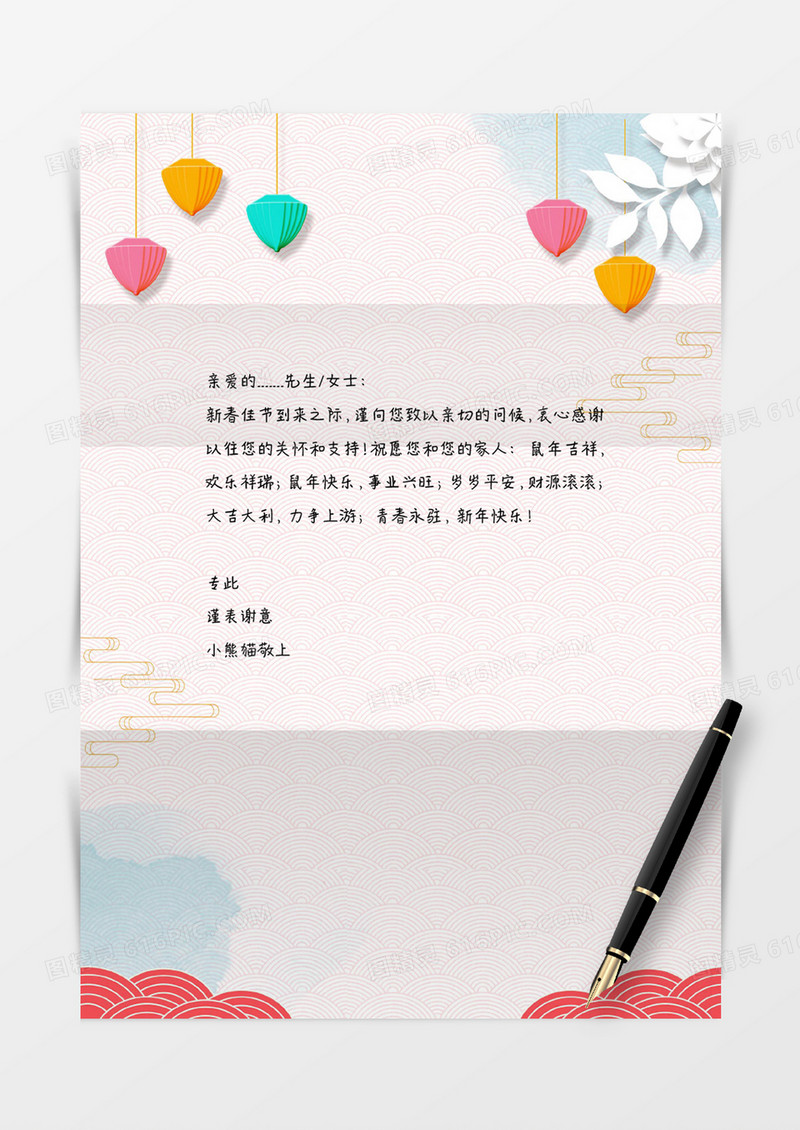 亲爱的.......先生/女士：
新春佳节到来之际，谨向您致以亲切的问候，衷心感谢
以往您的关怀和支持！祝愿您和您的家人： 鼠年吉祥，
欢乐祥瑞；鼠年快乐，事业兴旺；岁岁平安，财源滚滚；
大吉大利，力争上游； 青春永驻，新年快乐！
专此
谨表谢意
小熊猫敬上
图精灵 616PIC.COM